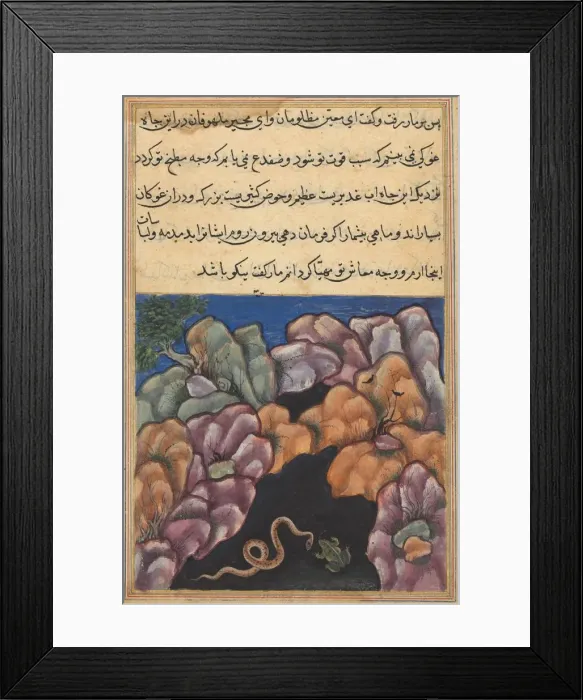 پس بر مار رفت و گفت ای معین مظلومان و ای مجیر ملهوفان در این چاه
غوکی نمی بینم که سبب قوت تو شود و ضفدع نمی یابم که وجه مطبخ تو گردد
نزدیک این چاه اب غدیریست عظیم و حوض کثیریست بزرک و در ان غوکان
بسیار اند و ماهی بیشمار اگر فرمان دهی بیرون روم و ایشانرا بدمدمه و
اینجا ارم و وجه معاش تو مهیا کردانم مار گفت نیکو باشد